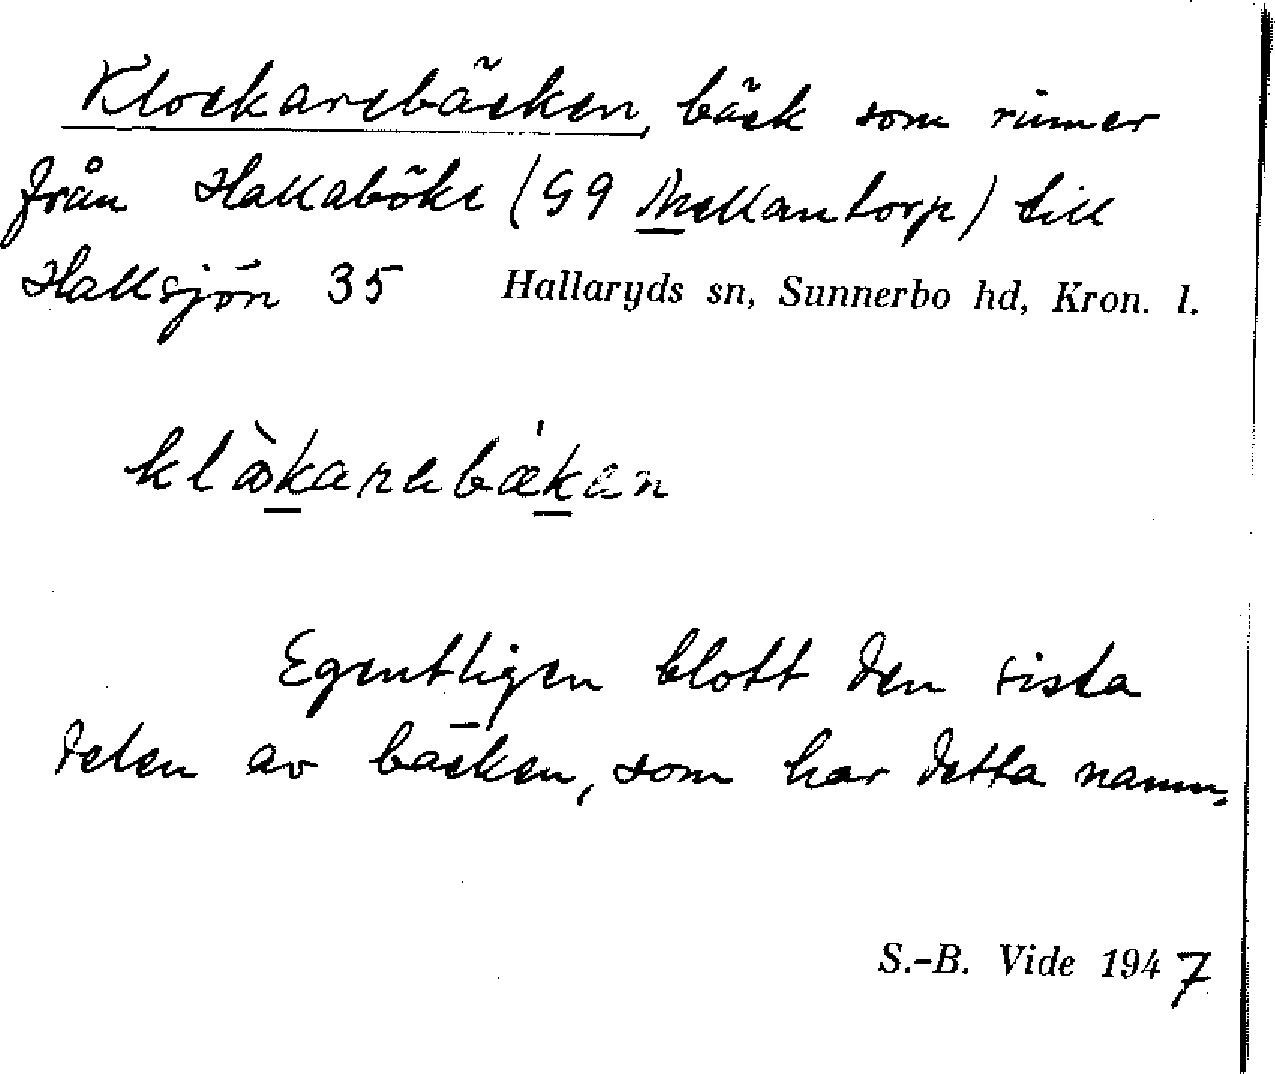 Klockarebäcken, bäck som rinner
från Hallaböke (G9 Mellantorp) till
Hallsjön 35 Hallaryds sn, Sunnerbo hd, Kron. l.
Egentligen blott den sista
delen av bäcken, som har detta namn.
S.-B. Vide 1947